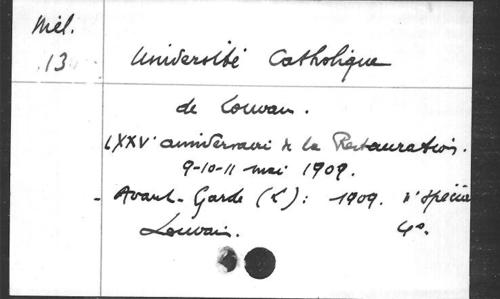 Mél.
13
Université Catholique
de Louvain.
LXXVe anniversaire de la Restauration.
9-10-11 mai 1909.
- Avant-Garde (L'): 1909. n° spécial
Louvain. 4°.